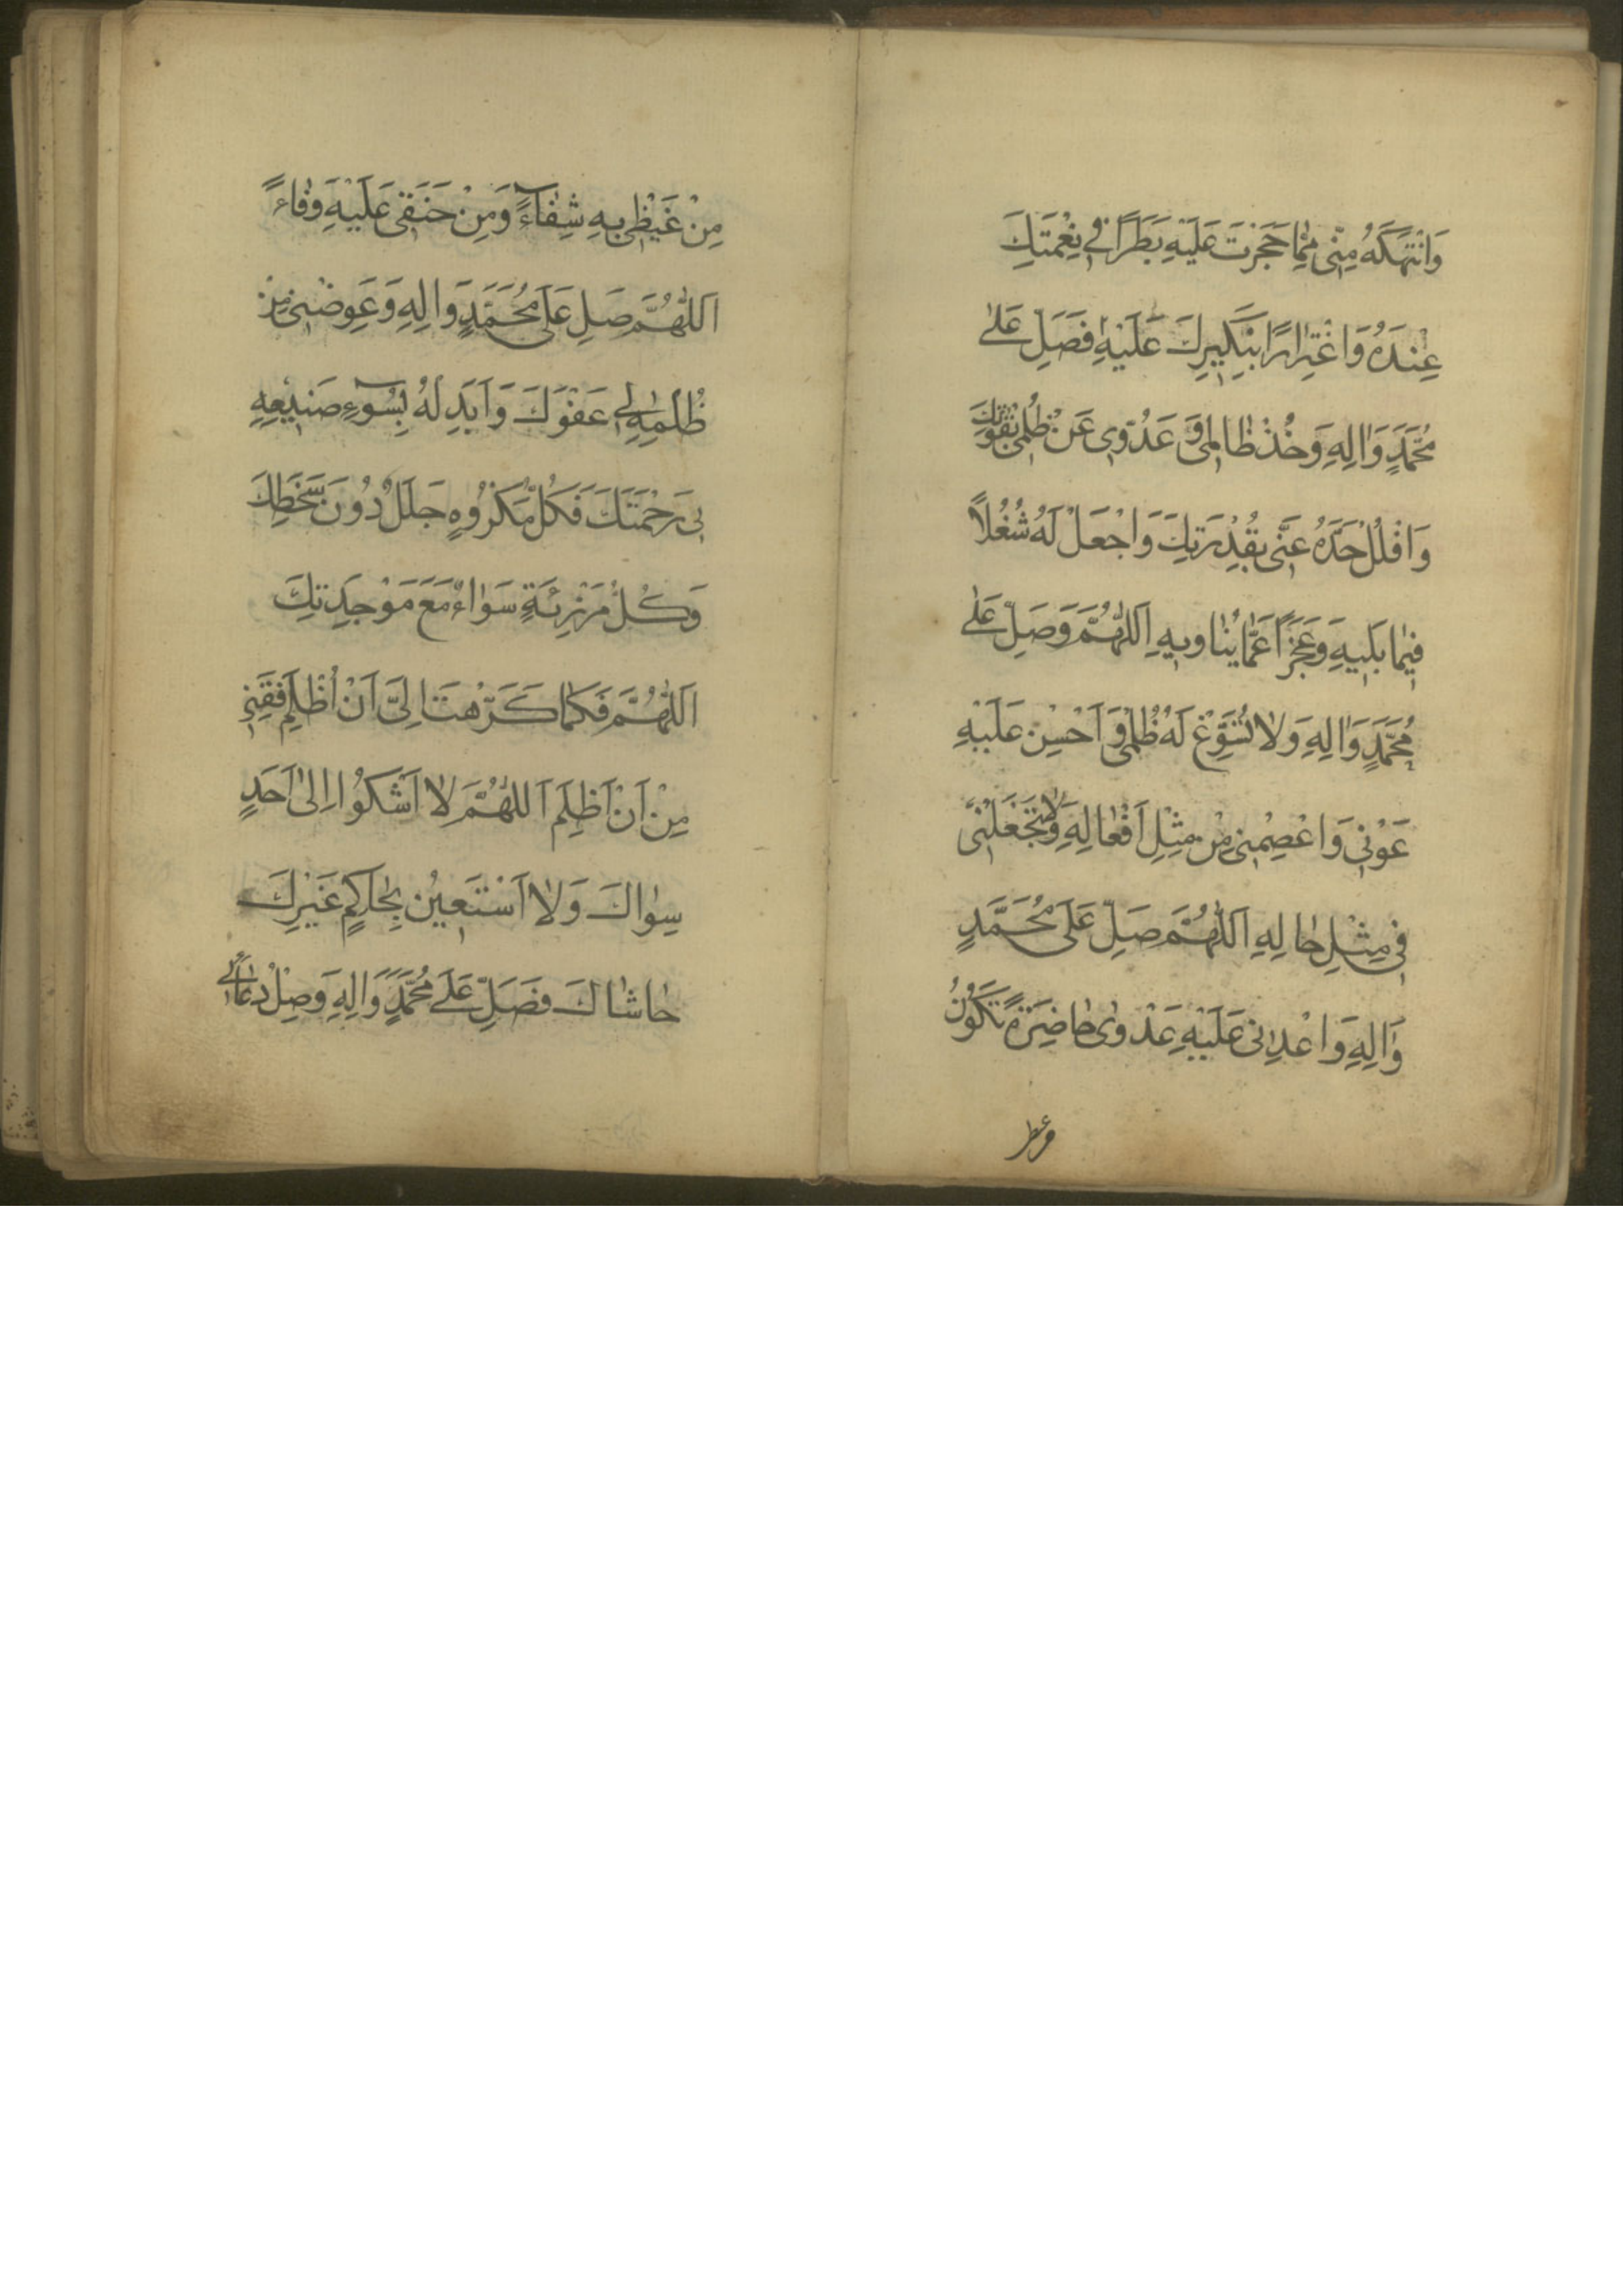 وَانْتَهَكَهُ مِنّى مِمّا حَجَزْتَ عَلَيْهِ بَطَرًا فى نِعْمَتِكَ
عِنْدَهُ وَاغْتِرارًا بِنَكيرِكَ عَلَيْهِ فَصَلِّ عَلىٰ
مُحَمَّدٍ وَالِهِ وَخُذْ ظالِمى وَ عَدُوّى عَنْ ظُلْمى بِقُوَّتِكَ
وَافْلُلْ حَدَّهُ عَنّى بِقُدْرَتِكَ وَاجْعَلْ لَهُ شُغُلاً
فيما يَليهِ وَعَجْزًا عَمّا يُناويهِ اَللّٰهُمَّ وَصَلِّ عَلىٰ
مُحَمَّدٍ وَالِهِ وَلا تُسَوِّغْ لَهُ ظُلْمى وَ اَحْسِنْ عَلَيْهِ
عَوْنى وَاعْصِمْنى مِنْ مِثْلِ اَفْعالِهِ وَلا تَجْعَلْنى
فى مِثْلِ حالِهِ اَللّٰهُمَّ صَلِّ عَلى مُحَمَّدٍ
وَالِهِ وَاعْدِنى عَلَيْهِ عَدْوٰى حاضِرَةً تَكُونُ
مِنْ غَيْظى بِهِ شِفاءً وَمِنْ حَنَقى عَلَيْهِ وَفاءً
اَللّٰهُمَّ صَلِّ عَلى مُحَمَّدٍ وَالِهِ وَعَوِضْنى مِنْ
ظُلْمِهِ لى عَفْوَكَ وَاَبْدِلْهُ بِسُوءِ صَنيعِهِ
بى رَحْمَتَكَ فَكُلُّ مَكْرُوهٍ جَلَلٌ دُونَ سَخَطِكَ
وَكُلُّ مَرْزِئَةٍ سَواءٌ مَعَ مَوْجِدَتِكَ
اَللّٰهُمَّ فَكَما كَرَّهْتَ اِلَىَّ اَنْ اُظْلَمَ فَقِنى
مِنْ اَنْ اَظْلِمَ اَللّٰهُمَّ لا اَشْكُوا اِلىٰ اَحَدٍ
سِواكَ وَلا اَسْتَعينُ بِحاكِمٍ غَيْرِكَ
حاشاكَ فَصَلِّ عَلىٰ مُحَمَّدٍ وَالِهِ وَصِلْ دُعائى